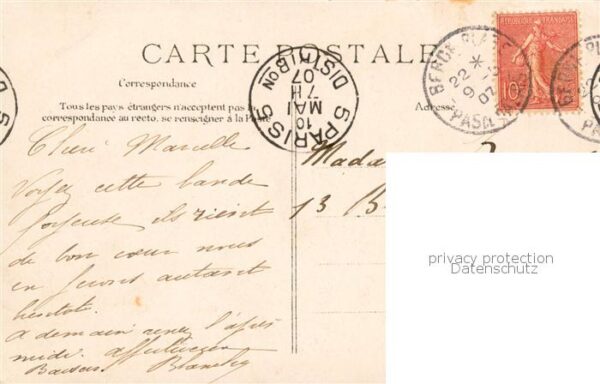 CARTE POSTALE
Correspondance
Tous les pays étrangers n'acceptent pas la
correspondance au recto. se renseigner à la Poste
Adresse
REPUBLIQUE FRANÇAISE
10
BERCK PLAGE
22 *
9
07
PAS DE
BERCK
PA
PARIS 5
10
MAI
7 H
07
DISTRIBON
5
Chère Marcelle
Voyez cette bande
Joyeuse ils rient
de bon cœur nous
en ferons autant
bientôt.
a demain venez l'après
midi. affectueux
Baisers. Blanche
Madam
13 B
privacy protection
Datenschutz